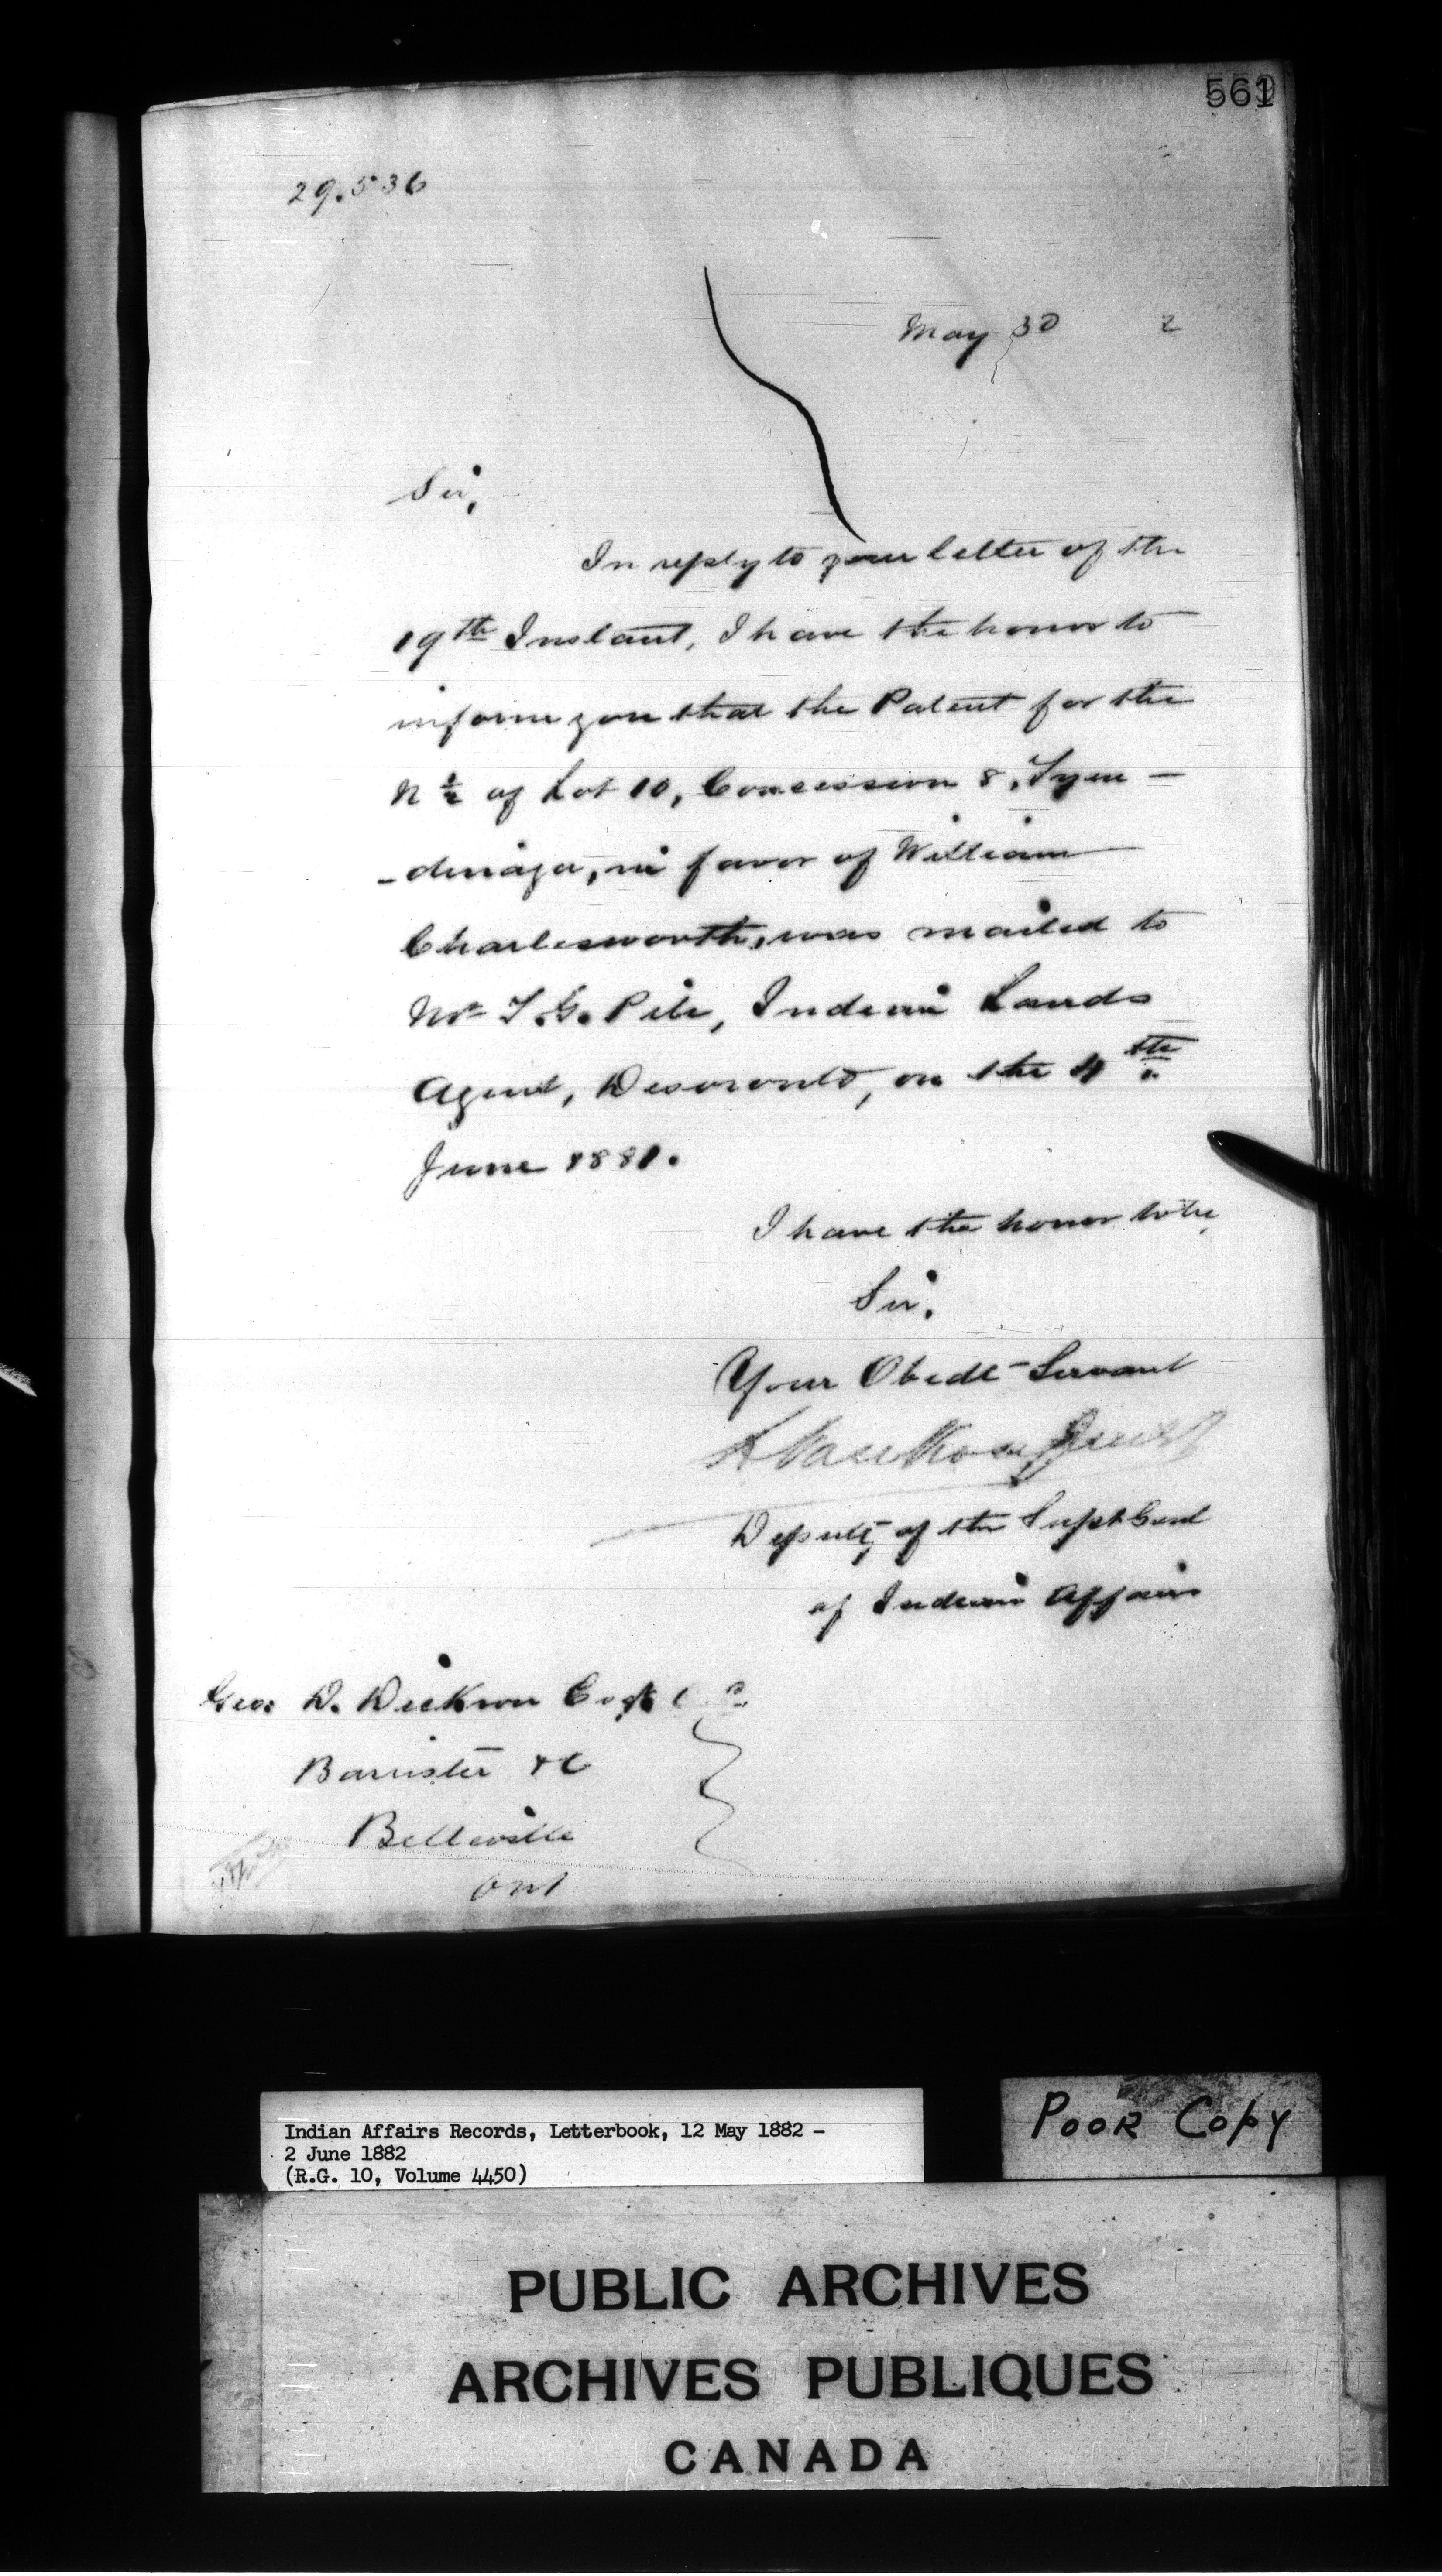 561
29.536
May 30 2
Sir,
In reply to your letter of the
19th Instant, I have the honor to
inform you that the Patent for the
N ½ of Lot 10, Concession 8, Tyen-
-dinaga, in favor of William
Charlesworth, was mailed to
Mr T.G. Pile, Indian Lands
Agent, Deseronto, on the 4th
June 1881.
I have the honor to be,
Sir,
Your Obedt Servant
L VanKoughnet
Deputy of the Supt Genl
of Indian Affairs
Geo: D. Dickson
Barrister &c
Belleville
Ont
Indian Affairs Records, Letterbook, 12 May 1882 -
2 June 1882
(R.G. 10, Volume 4450)
POOR COPY
PUBLIC ARCHIVES
ARCHIVES PUBLIQUES
CANADA